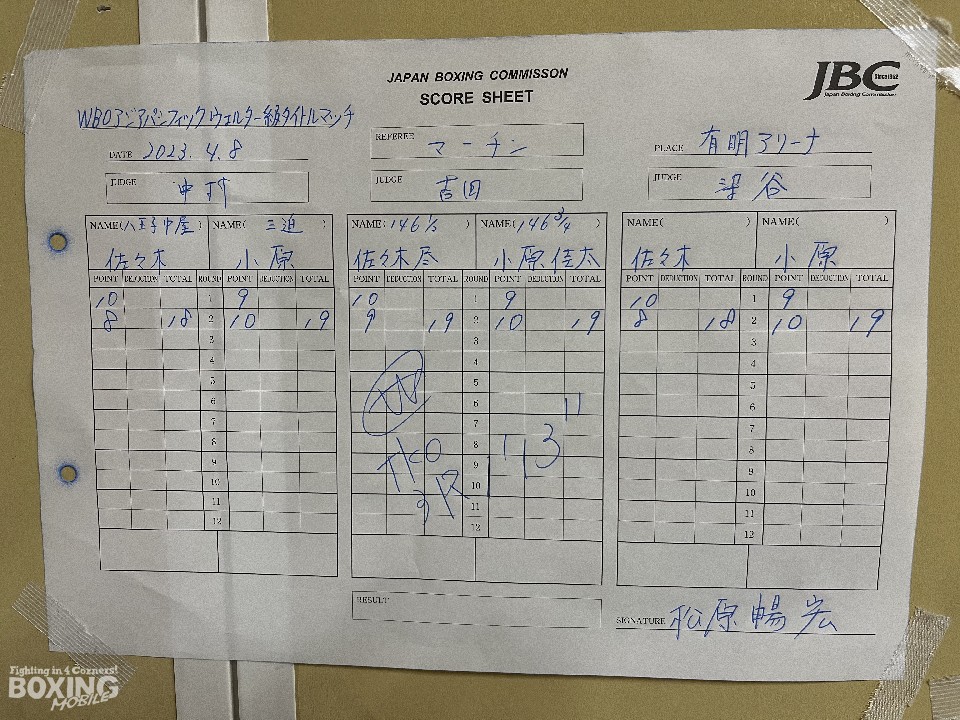 JAPAN BOXING COMMISSON
SCORE SHEET
JBC
Since1952
Japan Boxing Commission
WBOアジアパシフィックウェルター級タイトルマッチ
DATE 2023. 4. 8
REFEREE マーチン
PLACE 有明アリーナ
JUDGE 中村
JUDGE 吉田
JUDGE 染谷
NAME(八王子中屋) NAME( 三迫 )
佐々木 小原
POINT DEDUCTION TOTAL ROUND POINT DEDUCTION TOTAL
10 1 9
8 18 2 10 19
3
4
5
6
7
8
9
10
11
12
NAME(146 1/2 ) NAME(146 3/4 )
佐々木尽 小原佳太
POINT DEDUCTION TOTAL ROUND POINT DEDUCTION TOTAL
10 1 9
9 19 2 10 19
3
4
5
6
7
8
9
10
11
12
W
TKO
3R 1'13"
NAME( ) NAME( )
佐々木 小原
POINT DEDUCTION TOTAL ROUND POINT DEDUCTION TOTAL
10 1 9
8 18 2 10 19
3
4
5
6
7
8
9
10
11
12
RESULT
SIGNATURE 松原暢宏
Fighting in 4 Corners!
BOXING
MOBILE